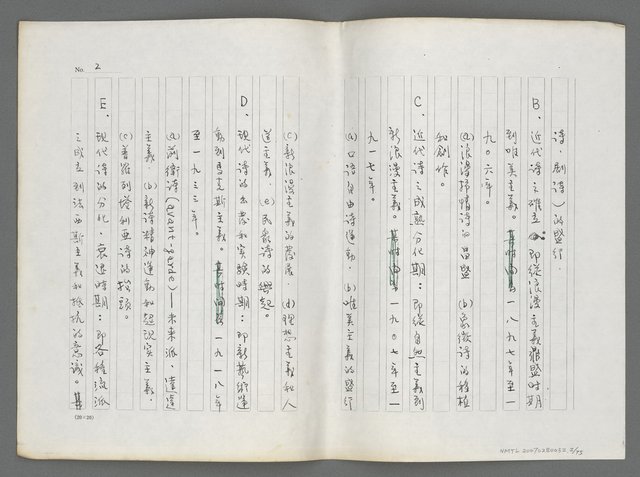 No. 2
詩、劇詩)的盛行。
B、近代詩之確立:即從浪漫主義鼎盛時期
到唯美主義。其時間為一八九七年至一
九〇六年。
(a)浪漫抒情詩的昌盛 (b)象徵詩的移植
和創作。
C、近代詩之成熟分化期:即從自然主義到
新浪漫主義。其時間為一九〇七年至一
九一七年。
(a)口語自由詩運動。(b)唯美主義的盛行
(c)新浪漫主義的發展。(d)理想主義和人
道主義。(e)民眾詩的興起。
D、現代詩的出發和實驗時期:即新藝術運
動到馬克斯主義。其時間為一九一八年
至一九三三年。
(a)前衛詩(avant-garde)—未來派、達達
主義。(b)新詩精神運動和超現實主義。
(c)普羅列塔利亞詩的抬頭。
E、現代詩的分化、衰退時期:即各種流派
之成立到法西斯主義和抵抗的意識。其
(20×20)
NMTL 20070280032 3/45